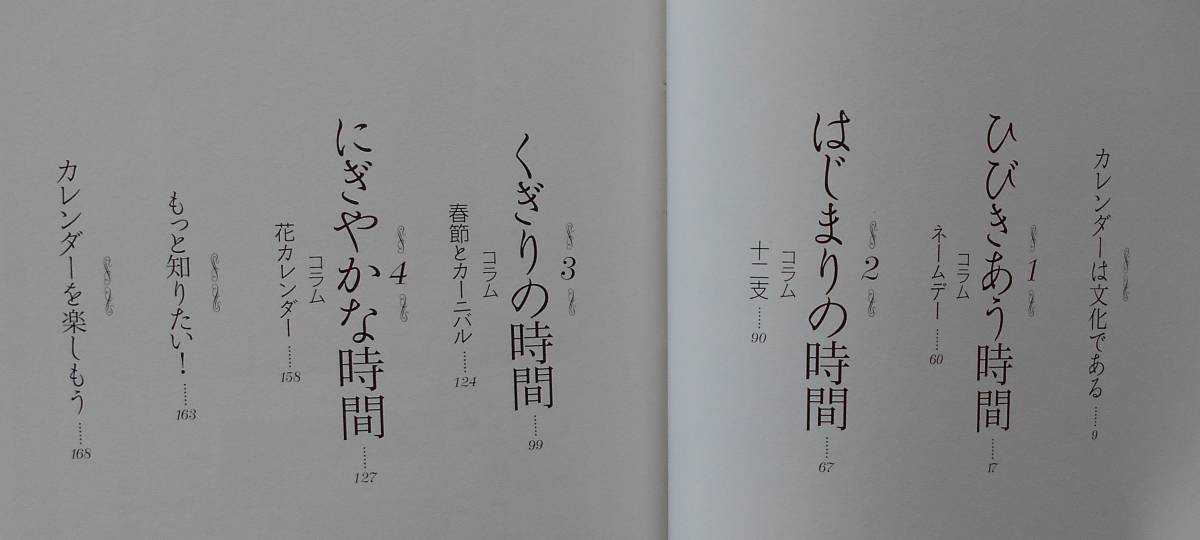 カレンダーは文化である……9
1
ひびきあう時間……17
コラム
ネームデー……60
2
はじまりの時間……67
コラム
十二支……90
3
くぎりの時間……99
コラム
春節とカーニバル……124
4
にぎやかな時間……127
コラム
花カレンダー……158
もっと知りたい！……163
カレンダーを楽しもう……168